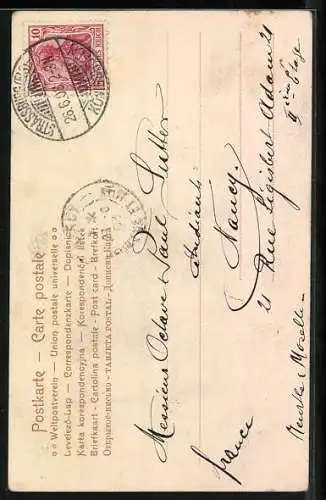 Postkarte — Carte postale
Weltpostverein — Union postale universelle
Levelező-Lap — Correspondenzkarte — Dopisnice
Karta korespondencyjna — Korespondenční lístek
Briefkaart — Cartolina postale — Post card — Brefkort
TARJETA POSTAL
10
STRASSBURG (ELS.)
26.6.0
Messieurs Octave & Paul Sutter
Étudiants
Nancy.
21 Rue Sigisbert Adam 21
IIème Étage
France
Meurthe & Moselle